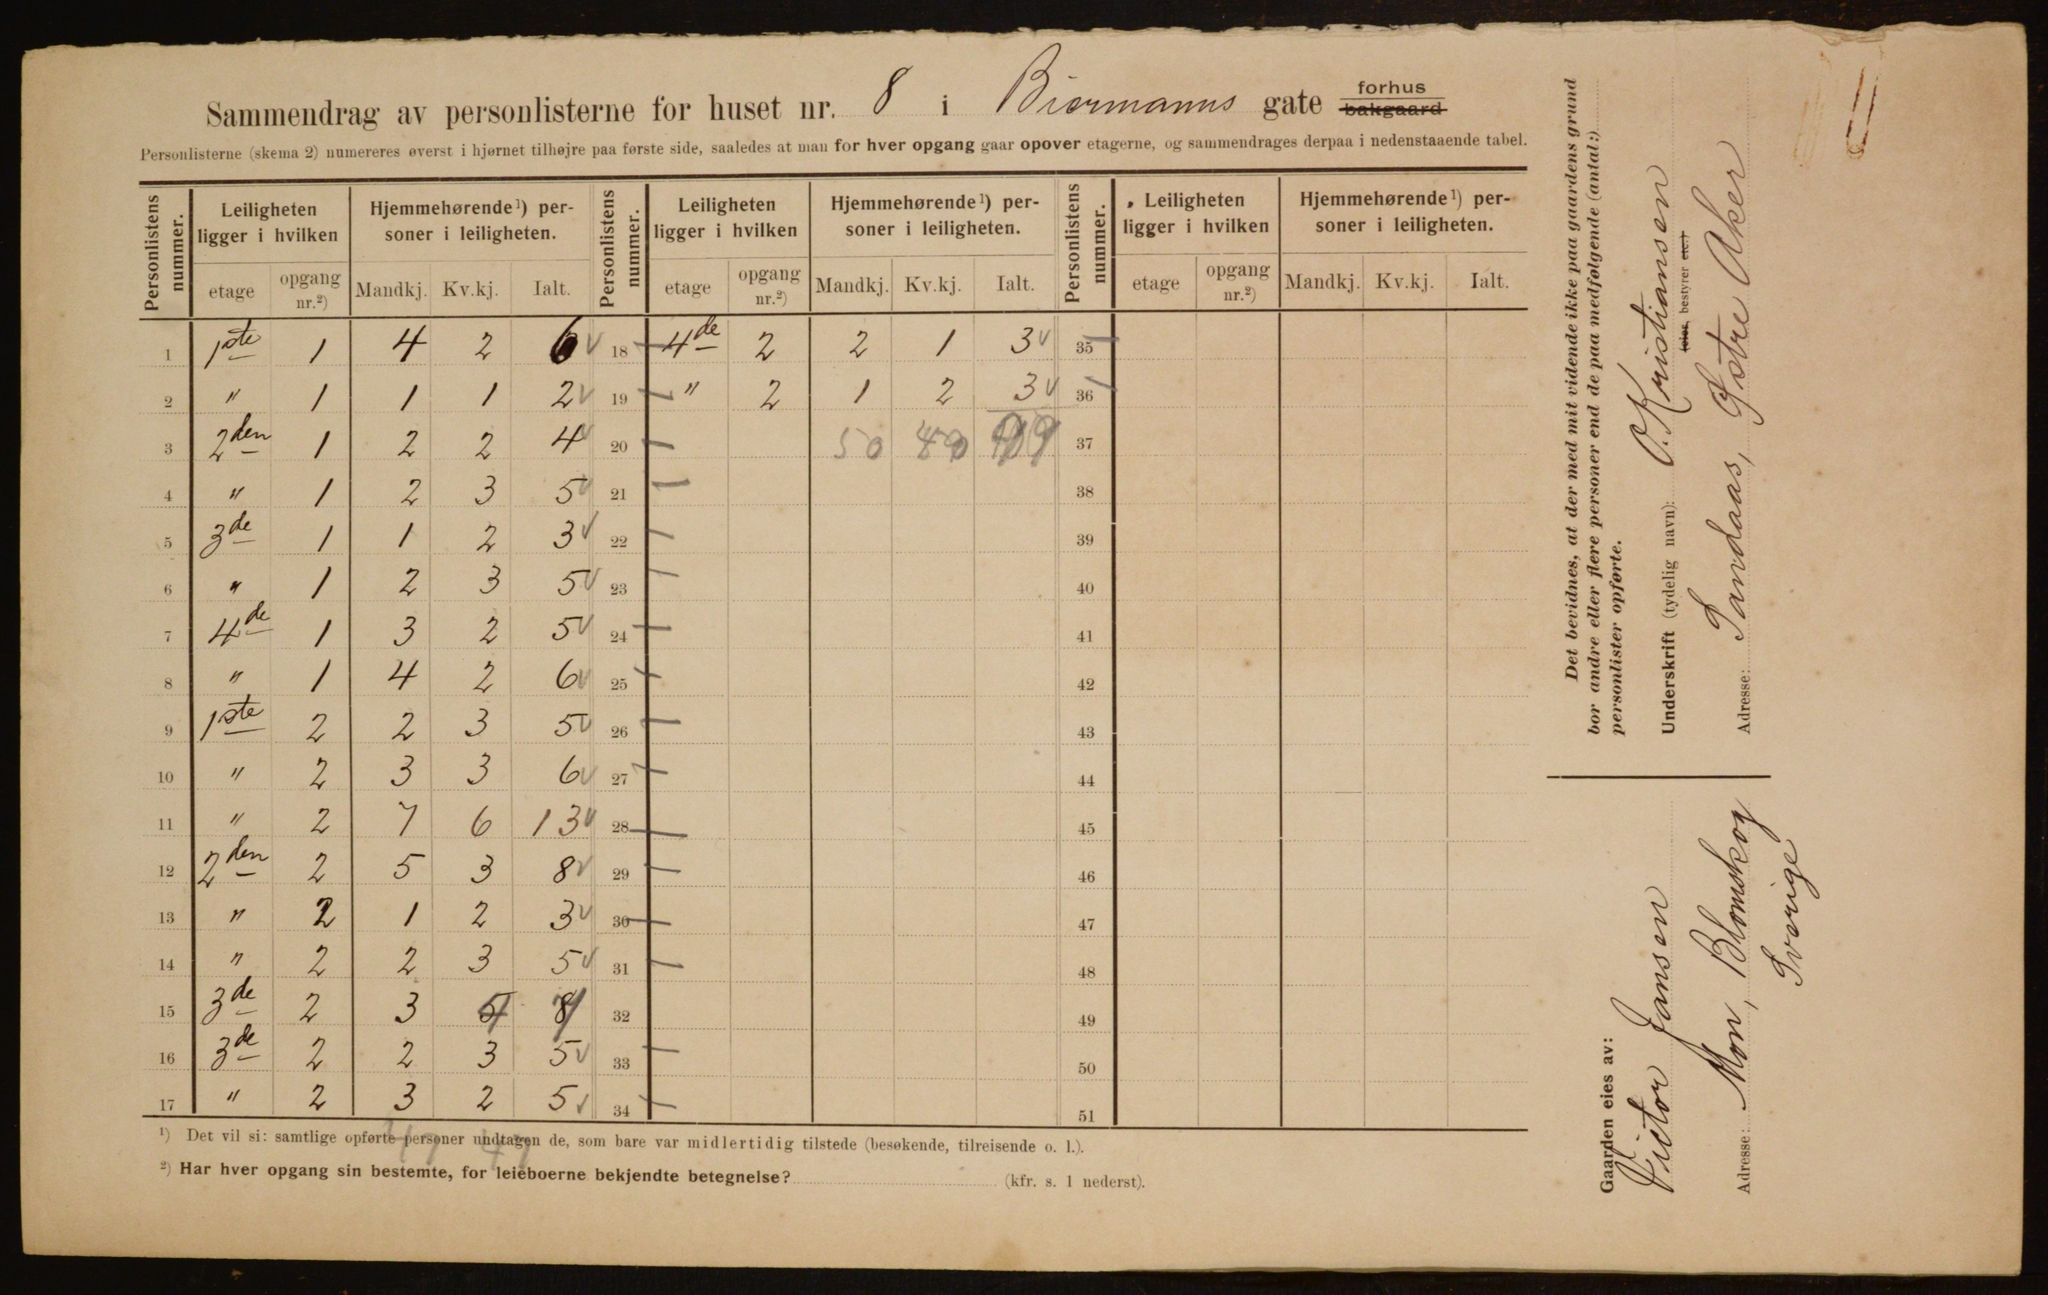 Sammendrag av personlisterne for huset nr. 8 i Biermanns gate forhus bakgaard
Personlisterne (skema 2) numereres øverst i hjørnet tilhøjre paa første side, saaledes at man for hver opgang gaar opover etagerne, og sammendrages derpaa i nedenstaaende tabel.
Personlistens nummer. Leiligheten ligger i hvilken Hjemmehørende ¹) personer i leiligheten. Personlistens nummer. Leiligheten ligger i hvilken Hjemmehørende ¹) personer i leiligheten. Personlistens nummer. Leiligheten ligger i hvilken Hjemmehørende ¹) personer i leiligheten.
etage opgang nr.²) Mandkj. Kv.kj. Ialt. etage opgang nr.²) Mandkj. Kv.kj. Ialt. etage opgang nr.²) Mandkj. Kv.kj. Ialt.
1 1ste 1 4 2 6 18 4de 2 2 1 3 35
2 " 1 1 1 2 19 " 2 1 2 3 36
3 2den 1 2 2 4 20 50 49 99 37
4 " 1 2 3 5 21 38
5 3de 1 1 2 3 22 39
6 " 1 2 3 5 23 40
7 4de 1 3 2 5 24 41
8 " 1 4 2 6 25 42
9 1ste 2 2 3 5 26 43
10 " 2 3 3 6 27 44
11 " 2 7 6 13 28 45
12 2den 2 5 3 8 29 46
13 " 2 1 2 3 30 47
14 " 2 2 3 5 31 48
15 3de 2 3 4 7 32 49
16 3de 2 2 3 5 33 50
17 " 2 3 2 5 34 51
¹) Det vil si: samtlige opførte personer undtagen de, som bare var midlertidig tilstede (besøkende, tilreisende o. l.).
47 47
²) Har hver opgang sin bestemte, for leieboerne bekjendte betegnelse? (kfr. s. 1 nederst).
Det bevidnes, at der med mit vidende ikke paa gaardens grund
bor andre eller flere personer end de paa medfølgende (antal:)
personlister opførte.
Underskrift (tydelig navn): O. Kristiansen
(eier, bestyrer etc.)
Adresse: Sandaas, Østre Aker
Gaarden eies av:
Victor Jansen
Adresse: Mon, Blomskog
Sverige